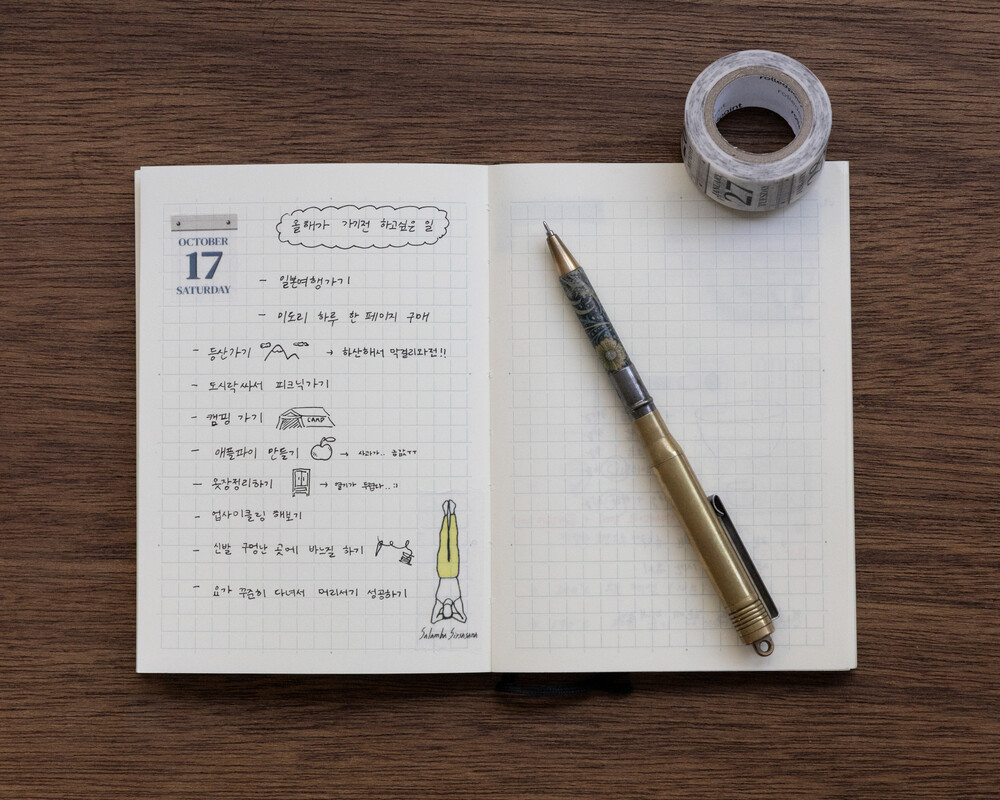 OCTOBER
17
SATURDAY
올해가 가기전 하고싶은 일
- 일본여행가기
- 이도리 하루 한 페이지 구매
- 등산가기 → 하산해서 막걸리와전!!
- 도시락싸서 피크닉가기
- 캠핑 가기 CAMP
- 애플파이 만들기 → 사과가..
- 옷장정리하기 → 열기가 두렵다..:)
- 업사이클링 해보기
- 신발 구멍난 곳에 바느질 하기
- 요가 꾸준히 다녀서 머리서기 성공하기
Salamba Sirsasana
27
TUESDAY